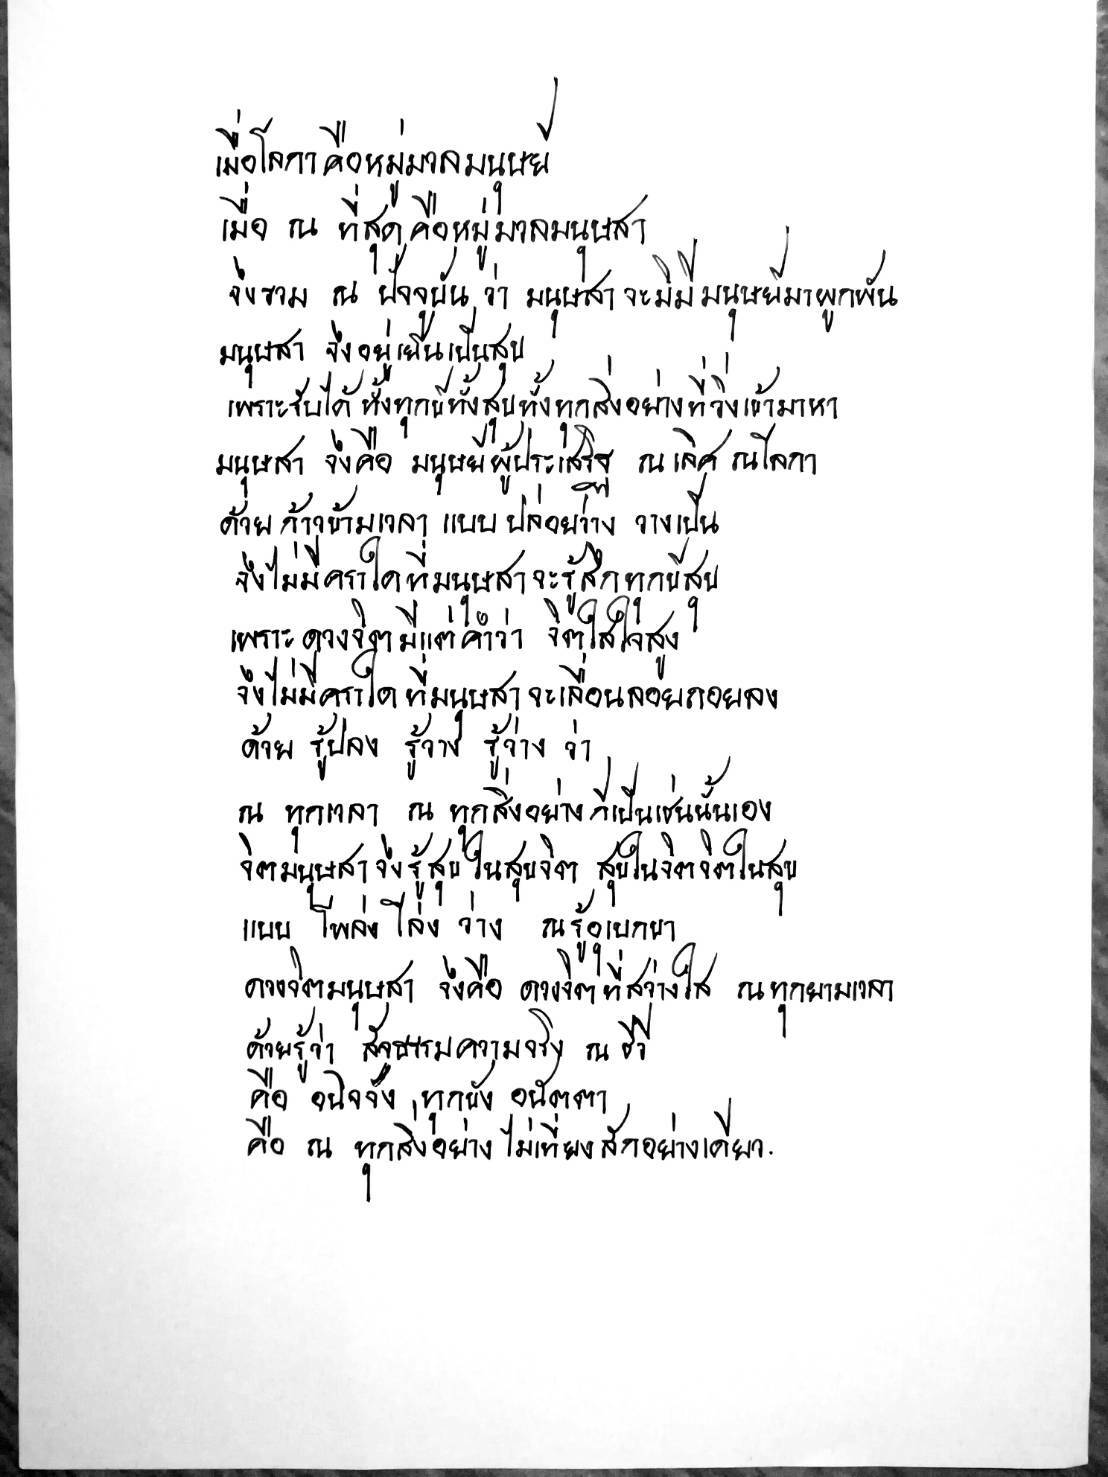 เมื่อโลกาคือหมู่มวลมนุษย์
เมื่อ ณ ที่สุดคือหมู่มวลมนุษสา
จึงรวม ณ ปัจจุบัน ว่า มนุษสาจะมิมีมนุษย์มาผูกพัน
มนุษสา จึงอยู่เย็นเป็นสุข
เพราะจับได้ ทั้งทุกข์ทั้งสุขทั้งทุกสิ่งอย่างที่วิ่งเข้ามาหา
มนุษสา จึงคือ มนุษย์ผู้ประเสริฐ ณ เลิศ ณ โลกา
ด้วย ก้าวข้ามเวลา แบบ ปล่อยวาง วางเป็น
จึงไม่มีคราใดที่มนุษสาจะรู้สึกทุกข์สุข
เพราะ ดวงจิตมีแต่คำว่า จิตใสใจสูง
จึงไม่มีคราใดที่มนุษสาจะเลื่อนลอยถอยลง
ด้วย รู้ปลง รู้วาง รู้ว่าง ว่า
ณ ทุกเวลา ณ ทุกสิ่งอย่างก็เป็นเช่นนั้นเอง
จิตมนุษสาจึงรู้สุขในสุขจิต สุขในจิตจิตในสุข
แบบ โพล่ง โล่ง ว่าง ณ รู้อุเบกขา
ดวงจิตมนุษสา จึงคือ ดวงจิตที่สว่างใส ณ ทุกยามเวลา
ด้วยรู้ว่า สัจธรรมความจริง ณ ชีวี
คือ อนิจจัง ทุกขัง อนัตตา
คือ ณ ทุกสิ่งอย่าง ไม่เที่ยงสักอย่างเดียว.